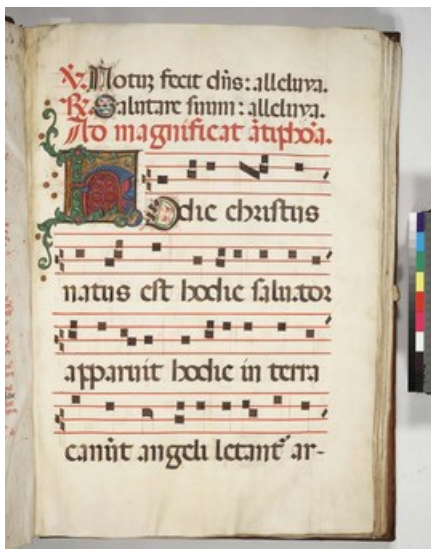 ℣. Notuz fecit dn̄s: alleluya.
℟. Salutare suum: alleluya.
Ad magnificat ātiphōa.
Hodie christus
natus est hodie saluator
apparuit hodie in terra
canūt angeli letant᷑ ar-